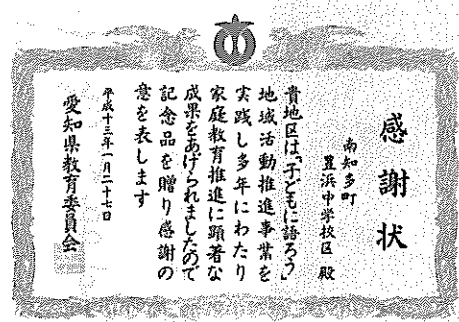 感謝状
南知多町
豊浜中学校区 殿
貴地区は「子どもに語ろう」
地域活動推進事業を
実践し多年にわたり
家庭教育推進に顕著な
成果をあげられましたので
記念品を贈り感謝の
意を表します
平成十三年一月二十七日
愛知県教育委員会